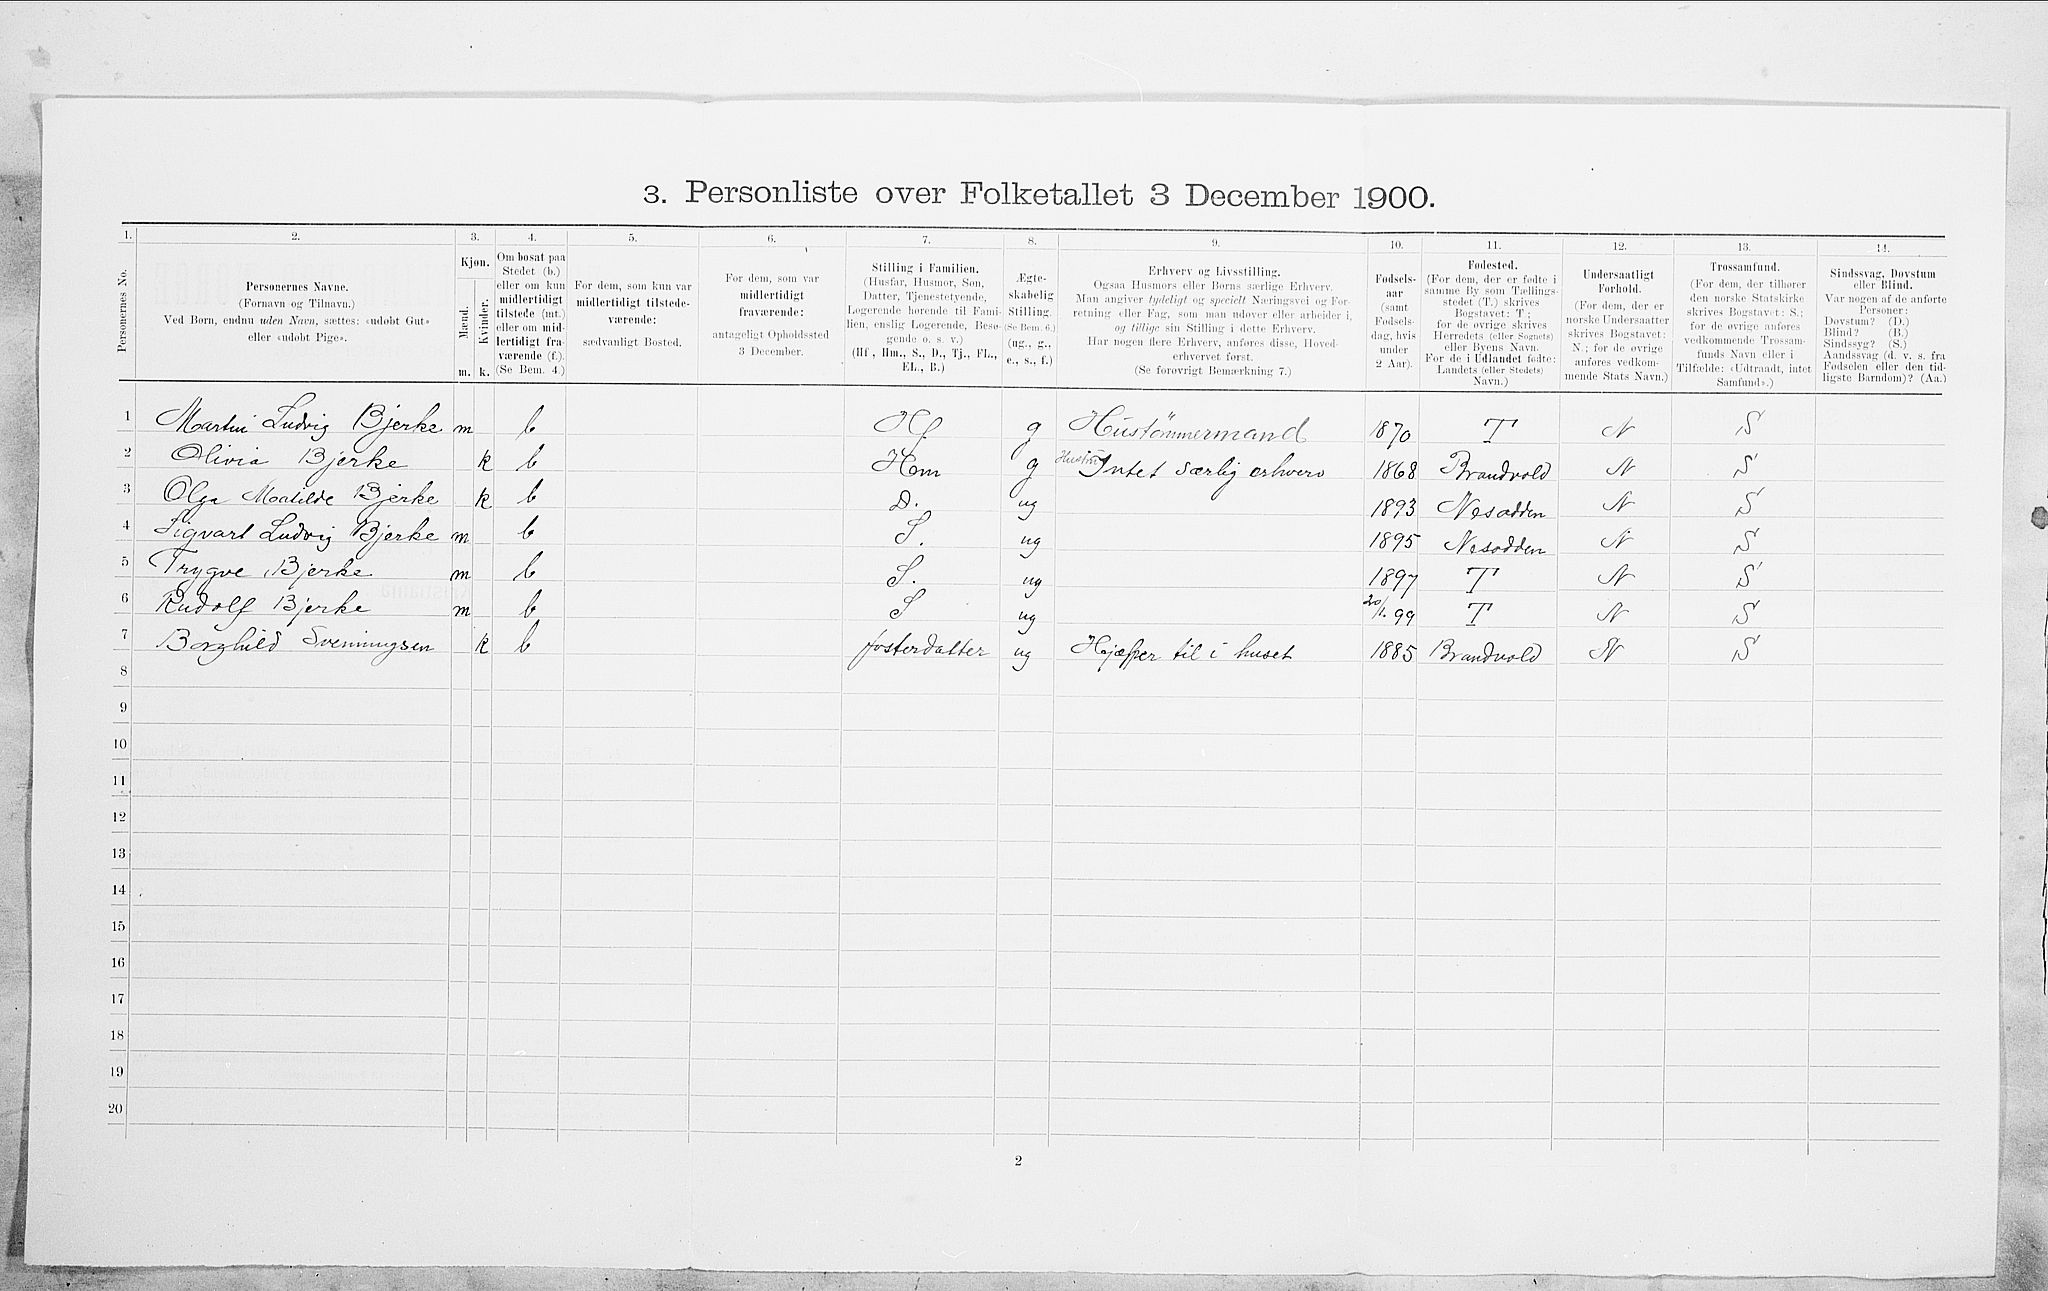 3. Personliste over Folketallet 3 December 1900.
1. 2. 3. 4. 5. 6. 7. 8. 9. 10. 11. 12. 13. 14.
Personernes No.
Personernes Navne.
(Fornavn og Tilnavn.)
Ved Børn, endnu uden Navn, sættes: «udøbt Gut»
eller «udøbt Pige».
Kjøn.
Mænd.
Kvinder.
m. k.
Om bosat paa
Stedet (b.)
eller om kun
midlertidigt
tilstede (mt.)
eller om mid-
lertidigt fra-
værende (f.).
(Se Bem. 4.)
For dem, som kun var
midlertidigt tilstede-
værende:
sædvanligt Bosted.
For dem, som var
midlertidigt
fraværende:
antageligt Opholdssted
3 December.
Stilling i Familien.
(Husfar, Husmor, Søn,
Datter, Tjenestetyende,
Logerende hørende til Fami-
lien, enslig Logerende, Besø-
gende o. s. v.)
(Hf., Hm., S., D., Tj., FL.,
EL., B.)
Ægte-
skabelig
Stilling.
(Se Bem. 6.)
(ug., g.,
e., s., f.)
Erhverv og Livsstilling.
Ogsaa Husmors eller Børns særlige Erhverv.
Man angiver tydeligt og specielt Næringsvei og For-
retning eller Fag, som man udøver eller arbeider i,
og tillige sin Stilling i dette Erhverv.
Har nogen flere Erhverv, anføres disse, Hoved-
erhvervet først.
(Se forøvrigt Bemærkning 7.)
Fødsels-
aar
(samt
Fødsels-
dag, hvis
under
2 Aar).
Fødested.
(For dem, der er fødte i
samme By som Tællings-
stedet (T.) skrives
Bogstavet: T;
for de øvrige skrives
Herredets (eller Sognets)
eller Byens Navn.
For de i Udlandet fødte:
Landets (eller Stedets)
Navn.)
Undersaatligt
Forhold.
(For dem, der er
norske Undersaatter
skrives Bogstavet:
N.; for de øvrige
anføres vedkom-
mende Stats Navn.)
Trossamfund.
(For dem, der tilhører
den norske Statskirke
skrives Bogstavet: S.;
for de øvrige anføres
vedkommende Trossam-
funds Navn eller i
Tilfælde: «Udtraadt, intet
Samfund».)
Sindssvag, Døvstum
eller Blind.
Var nogen af de anførte
Personer:
Døvstum? (D.)
Blind? (B.)
Sindssyg? (S.)
Aandssvag (d. v. s. fra
Fødselen eller den tid-
ligste Barndom)? (Aa.)
1 Martin Ludvig Bjerke m b Hf g Hustømmermand 1870 T N S
2 Olivia Bjerke k b Hm g Intet særlig erhverv 1868 Brandvold N S
3 Olga Matilde Bjerke k b D. ug 1893 Nesodden N S
4 Sigvart Ludvig Bjerke m b S. ug 1895 Nesodden N S
5 Trygve Bjerke m b S. ug 1897 T N S
6 Rudolf Bjerke m b S ug 20/1. 99 T N S
7 Borghild Svenningsen k b fosterdatter ug Hjæper til i huset 1885 Brandvold N S
8
9
10
11
12
13
14
15
16
17
18
19
20
2